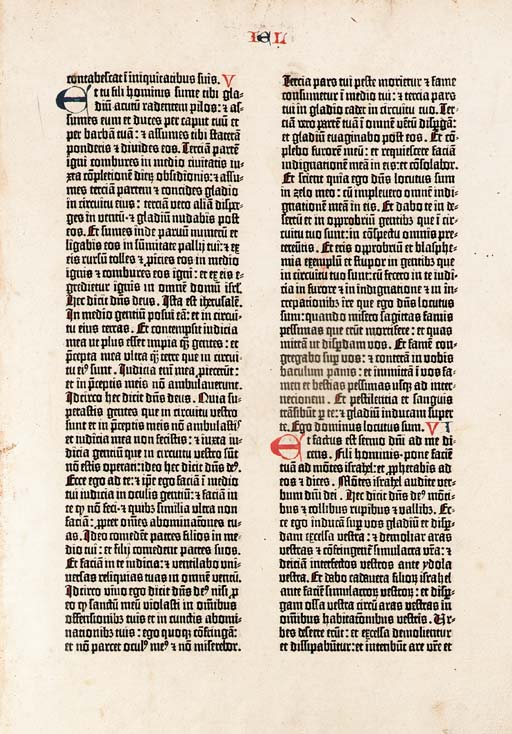 IEL
contabescāt ī iniquitatibus suis. V
Et tu fili hominis sume tibi gla-
diū acutū radentem pilos: et as-
sumes eum et duces per caput tuū et
per barbā tuā: et assumes tibi staterā
ponderis et divides eos. Terciā partē
igni combures in medio civitatis iu-
xta cōpletionē dierū obsidionis: et assu-
mes terciā partem et concides gladio
in circuitu eius: terciā vero aliā disper-
ges in ventū · et gladiū nudabis post
eos. Et sumes inde parvum numerū et
ligabis eos in sūmitate pallij tui: et ex
eis rursū tolles et ꝓicies eos in medio
ignis et combures eos igni: et ex eis e-
gredietur ignis in omnē domū isrl.
Hec dicit dn̄s deus. Ista est iherusalē.
In medio gentiū posui eā: et in circui-
tu eius terras. Et contempsit iudicia
mea ut plus esset impia qͣ gentes: et
p̄cepta mea ultra qͣ terre que in circui-
tu eiꝰ sunt. Iudicia eni mea ꝓiecerūt:
et in p̄ceptis meis nō ambulaverūt.
Idcirco hec dicit dn̄s deus. Quia su-
perastis gentes que in circuitu vestro
sunt et in p̄ceptis meis nō ambulastis
et iudicia mea non fecistis: et iuxta iu-
dicia gentiū que in circuitu vestro sūt
nō estis operati: ideo hec dicit dn̄s deꝰ.
Ecce ego ad te: et ip̄e ego faciā ī medio
tui iudicia in oculis gentiū: et faciā in
te qꝫ nō feci · et quibꝫ similia ultra non
faciā: ꝓpter om̄es abominatiōes tu-
as. Ideo comedēt patres filios in me-
dio tui: et filij comedent patres suos.
Et faciā in te iudicia: et ventilabo uni-
versas reliquias tuas in omnē ventū.
Idcirco vivo ego dicit dn̄s deꝰ nisi ꝓ
eo qꝫ sanctū meū violasti in om̄ibus
offensionibꝰ tuis et in cunctis abomi-
nationibus tuis: ego quoqꝫ cōfringā:
et nō parcet oculꝰ meꝰ et nō miserebor.
Tercia pars tui peste morietur et fame
consumetur ī medio tui: et tercia pars
tui in gladio cadet in circuitu tuo. Ter-
ciā vero partē tuā ī omnē vētū disꝑgā:
et gladiū evaginabo post eos. Et cō-
plebo furorē meū: et requiescere faciā
indignationē meā in eis: et cōsolabor.
Et scient quia ego dn̄s locutus sum
in zelo meo: cū implevero omnē indi-
gnationē meā in eis. Et dabo te in de-
sertū et in opprobriū gentibꝫ que ī cir-
cuitu tuo sunt: in cōspectu omnis pre-
tereūtis. Et eris opprobriū et blasphe-
mia exemplū et stupor in gentibꝫ que
in circuitu tuo sunt: cū fecero in te iudi-
cia in furore et in indignatione et in in-
crepationibꝫ ire que ego dn̄s locutus
sum: quando misero sagittas famis
pessimas que erūt mortifere: et quas
mittā ut disꝑdam vos. Et famē con-
gregabo suꝑ vos: et conterā in vobis
baculum panis: et immittā ī vos fa-
mem et bestias pessimas usqꝫ ad inter-
necionem. Et pestilentia et sanguis
trāsibūt ꝑ te: et gladiū inducam super
te. Ego dominus locutus sum. VI
Et factus est sermo dn̄i ad me di-
cens. Fili hominis · pone faciē
tuā ad mōtes israhel: et ꝓphetabis ad
eos et dices. Mōtes israhel audite ver-
bum dn̄i dei. Hec dicit dn̄s deꝰ mōti-
bus et collibus rupibus et vallibꝫ. Ec-
ce ego inducā suꝑ vos gladiū et disꝑ-
dam excelsa vestra: et demoliar aras
vestras et cōfringent̄ simulacra vr̄a: et
deiciā interfectos vestros ante ydola
vestra. Et dabo cadavera filioꝝ israhel
ante faciē simulacroꝝ vestroꝝ: et disꝑ-
gam ossa vestra circū aras vestras in
omnibus habitatiōibus vestris. Ur-
bes deserte erūt: et excelsa demolientur
et dissipabūtur: et interibūt are vr̄e et